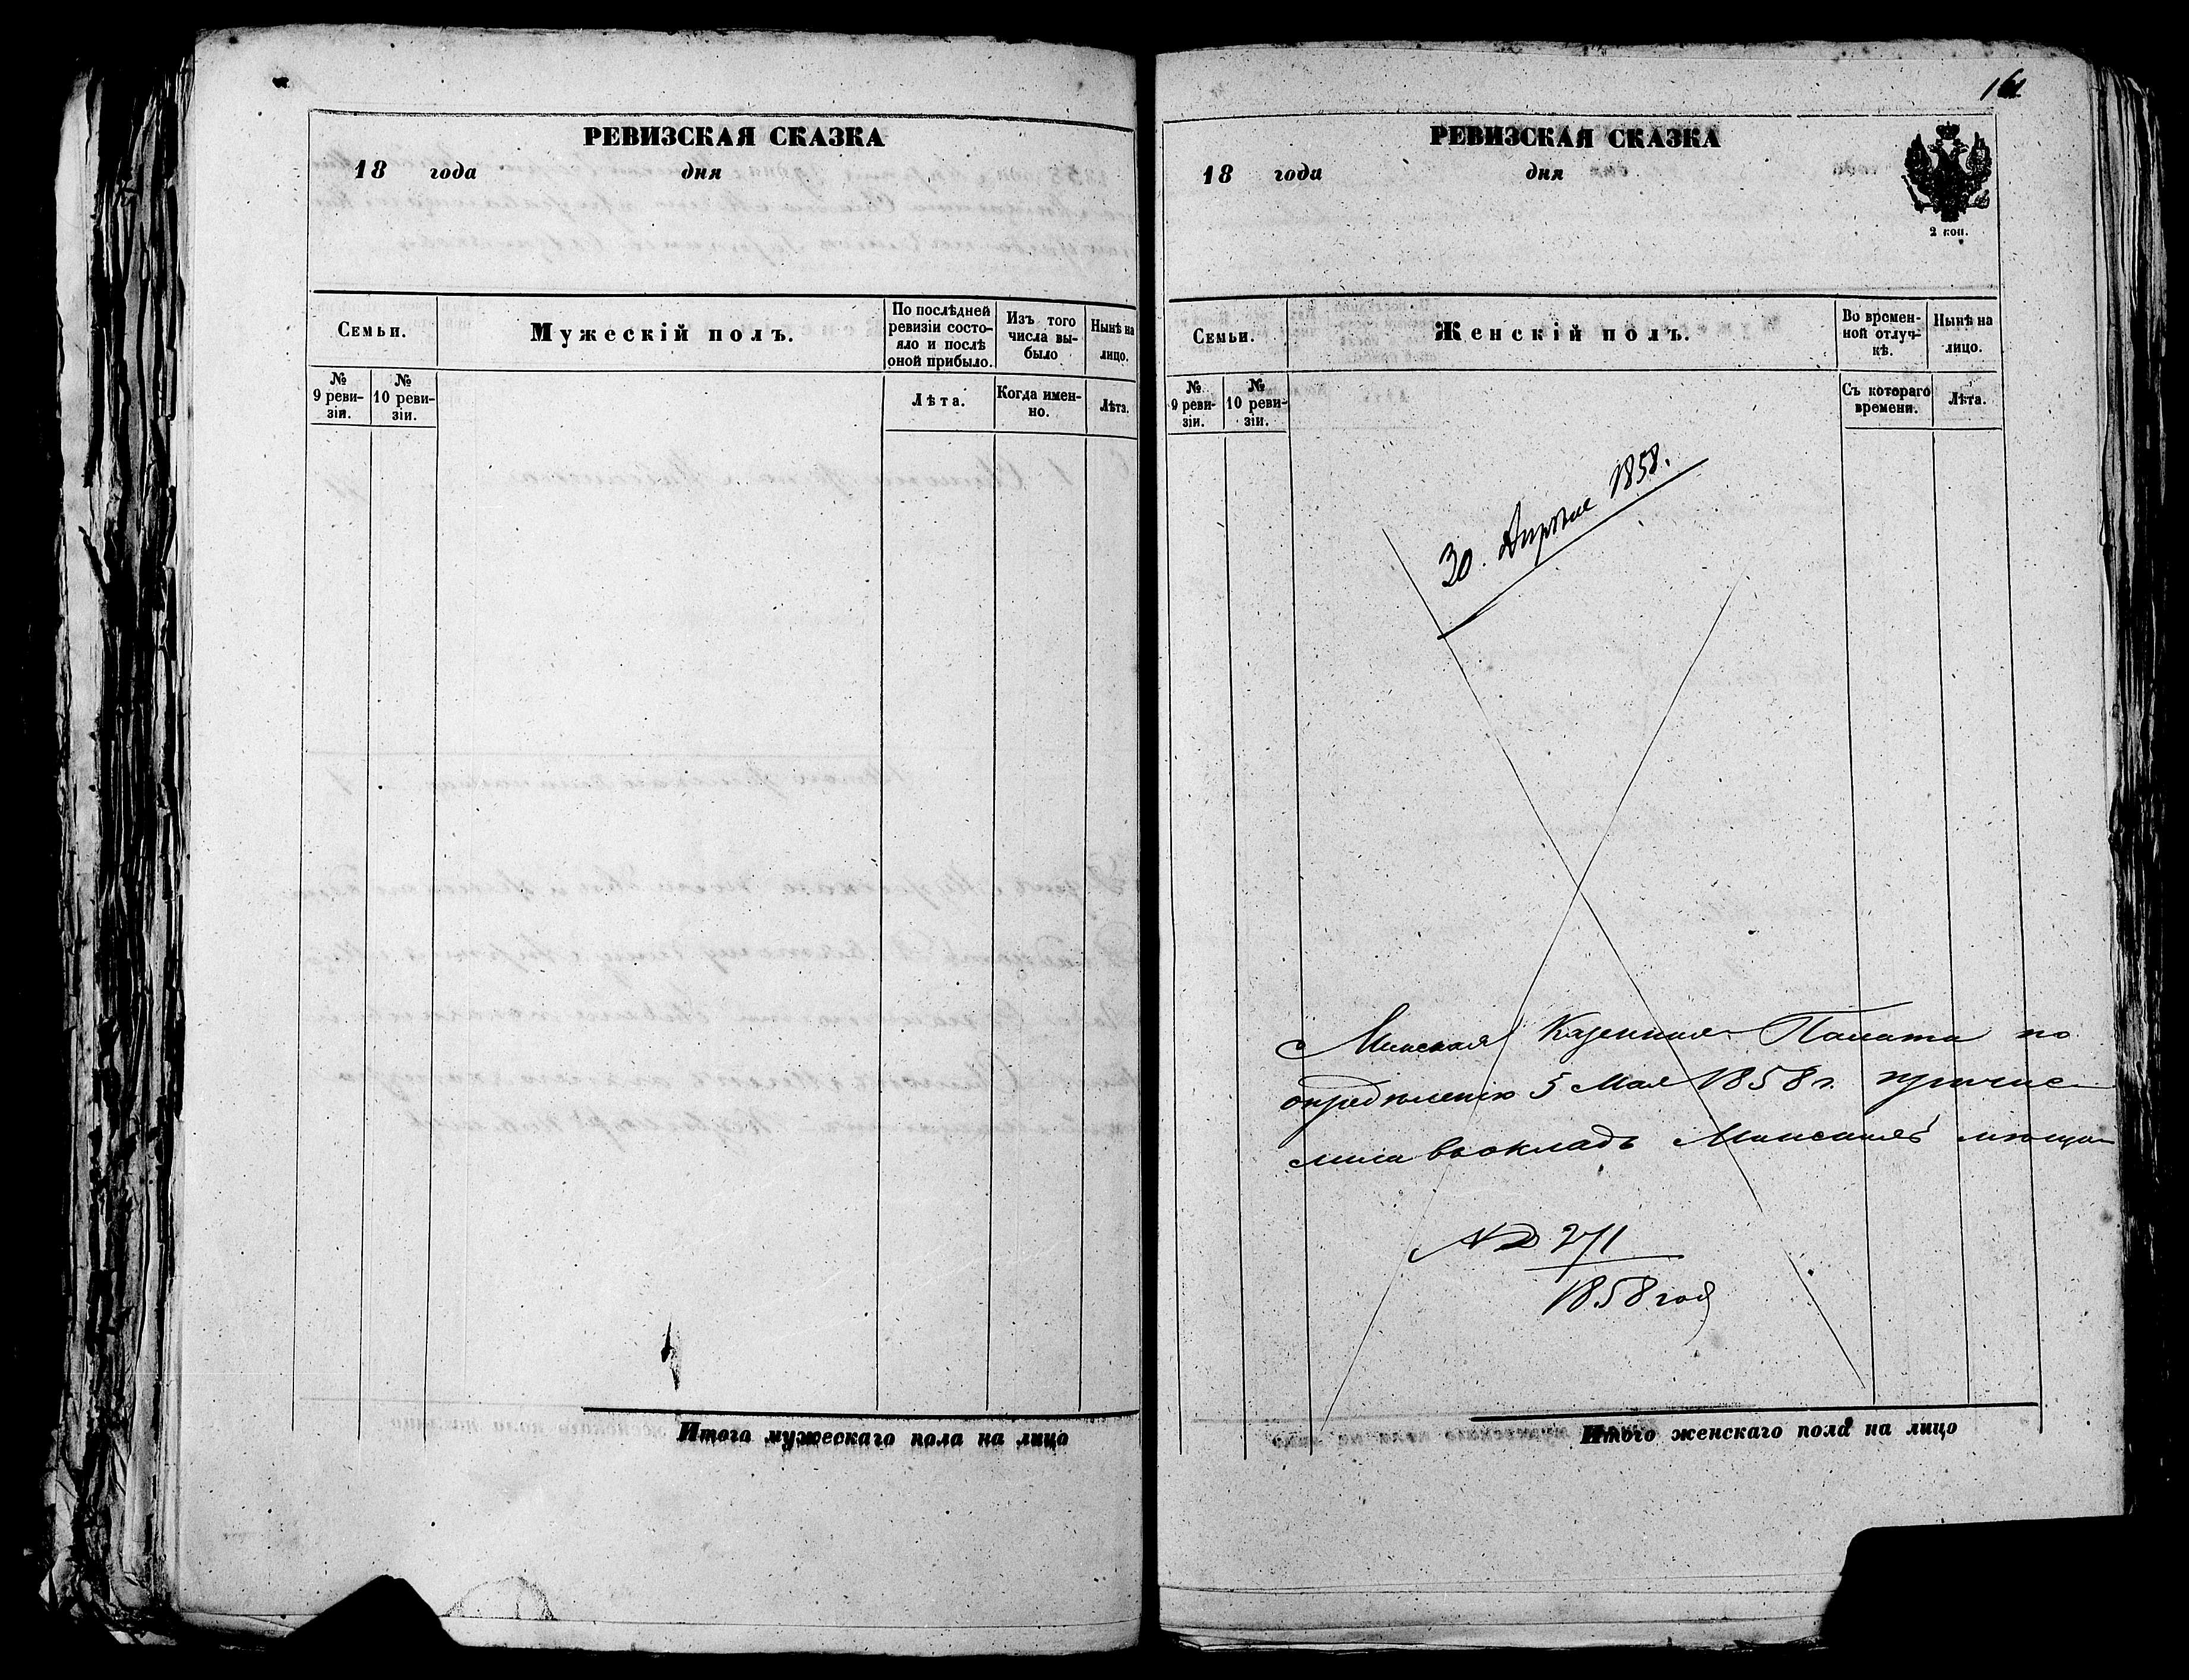 РЕВИЗСКАЯ СКАЗКА
18 года дня
Семьи.
Мужескій полъ.
По послѣдней
ревизіи состо-
яло и послѣ
оной прибыло.
Изъ того
числа вы-
было
Нынѣ на
лицо.
№
9 реви-
зіи.
№
10 реви-
зіи.
Лѣта.
Когда имен-
но.
Лѣта.
Итого мужескаго пола на лицо
161
РЕВИЗСКАЯ СКАЗКА
18 года дня
2 коп.
Семьи.
Женскій полъ.
Во времен-
ной отлуч-
кѣ.
Нынѣ на
лицо.
№
9 реви-
зіи.
№
10 реви-
зіи.
Съ котораго
времени.
Лѣта.
30. Апрѣля 1858.
Минская Казенная Палата по
опредѣленію 5 Мая 1858 г. причис-
лила въ окладъ Минскихъ мѣщан
№ 271
1858 год
Итого женскаго пола на лицо